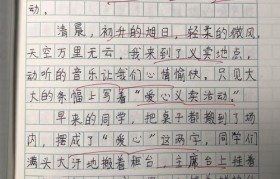 动。
清晨，初升的旭日，轻柔的微风，
天空万里无云。我来到了义卖地点，
动听的音乐让我们心情愉快。只见大
大的条幅上写着“爱心义卖活动。”
早来的同学，把桌子都搬到了场
内，摆成了“爱心”这两字，同学们
满头大汗地搬着柜台，主席台上挂着